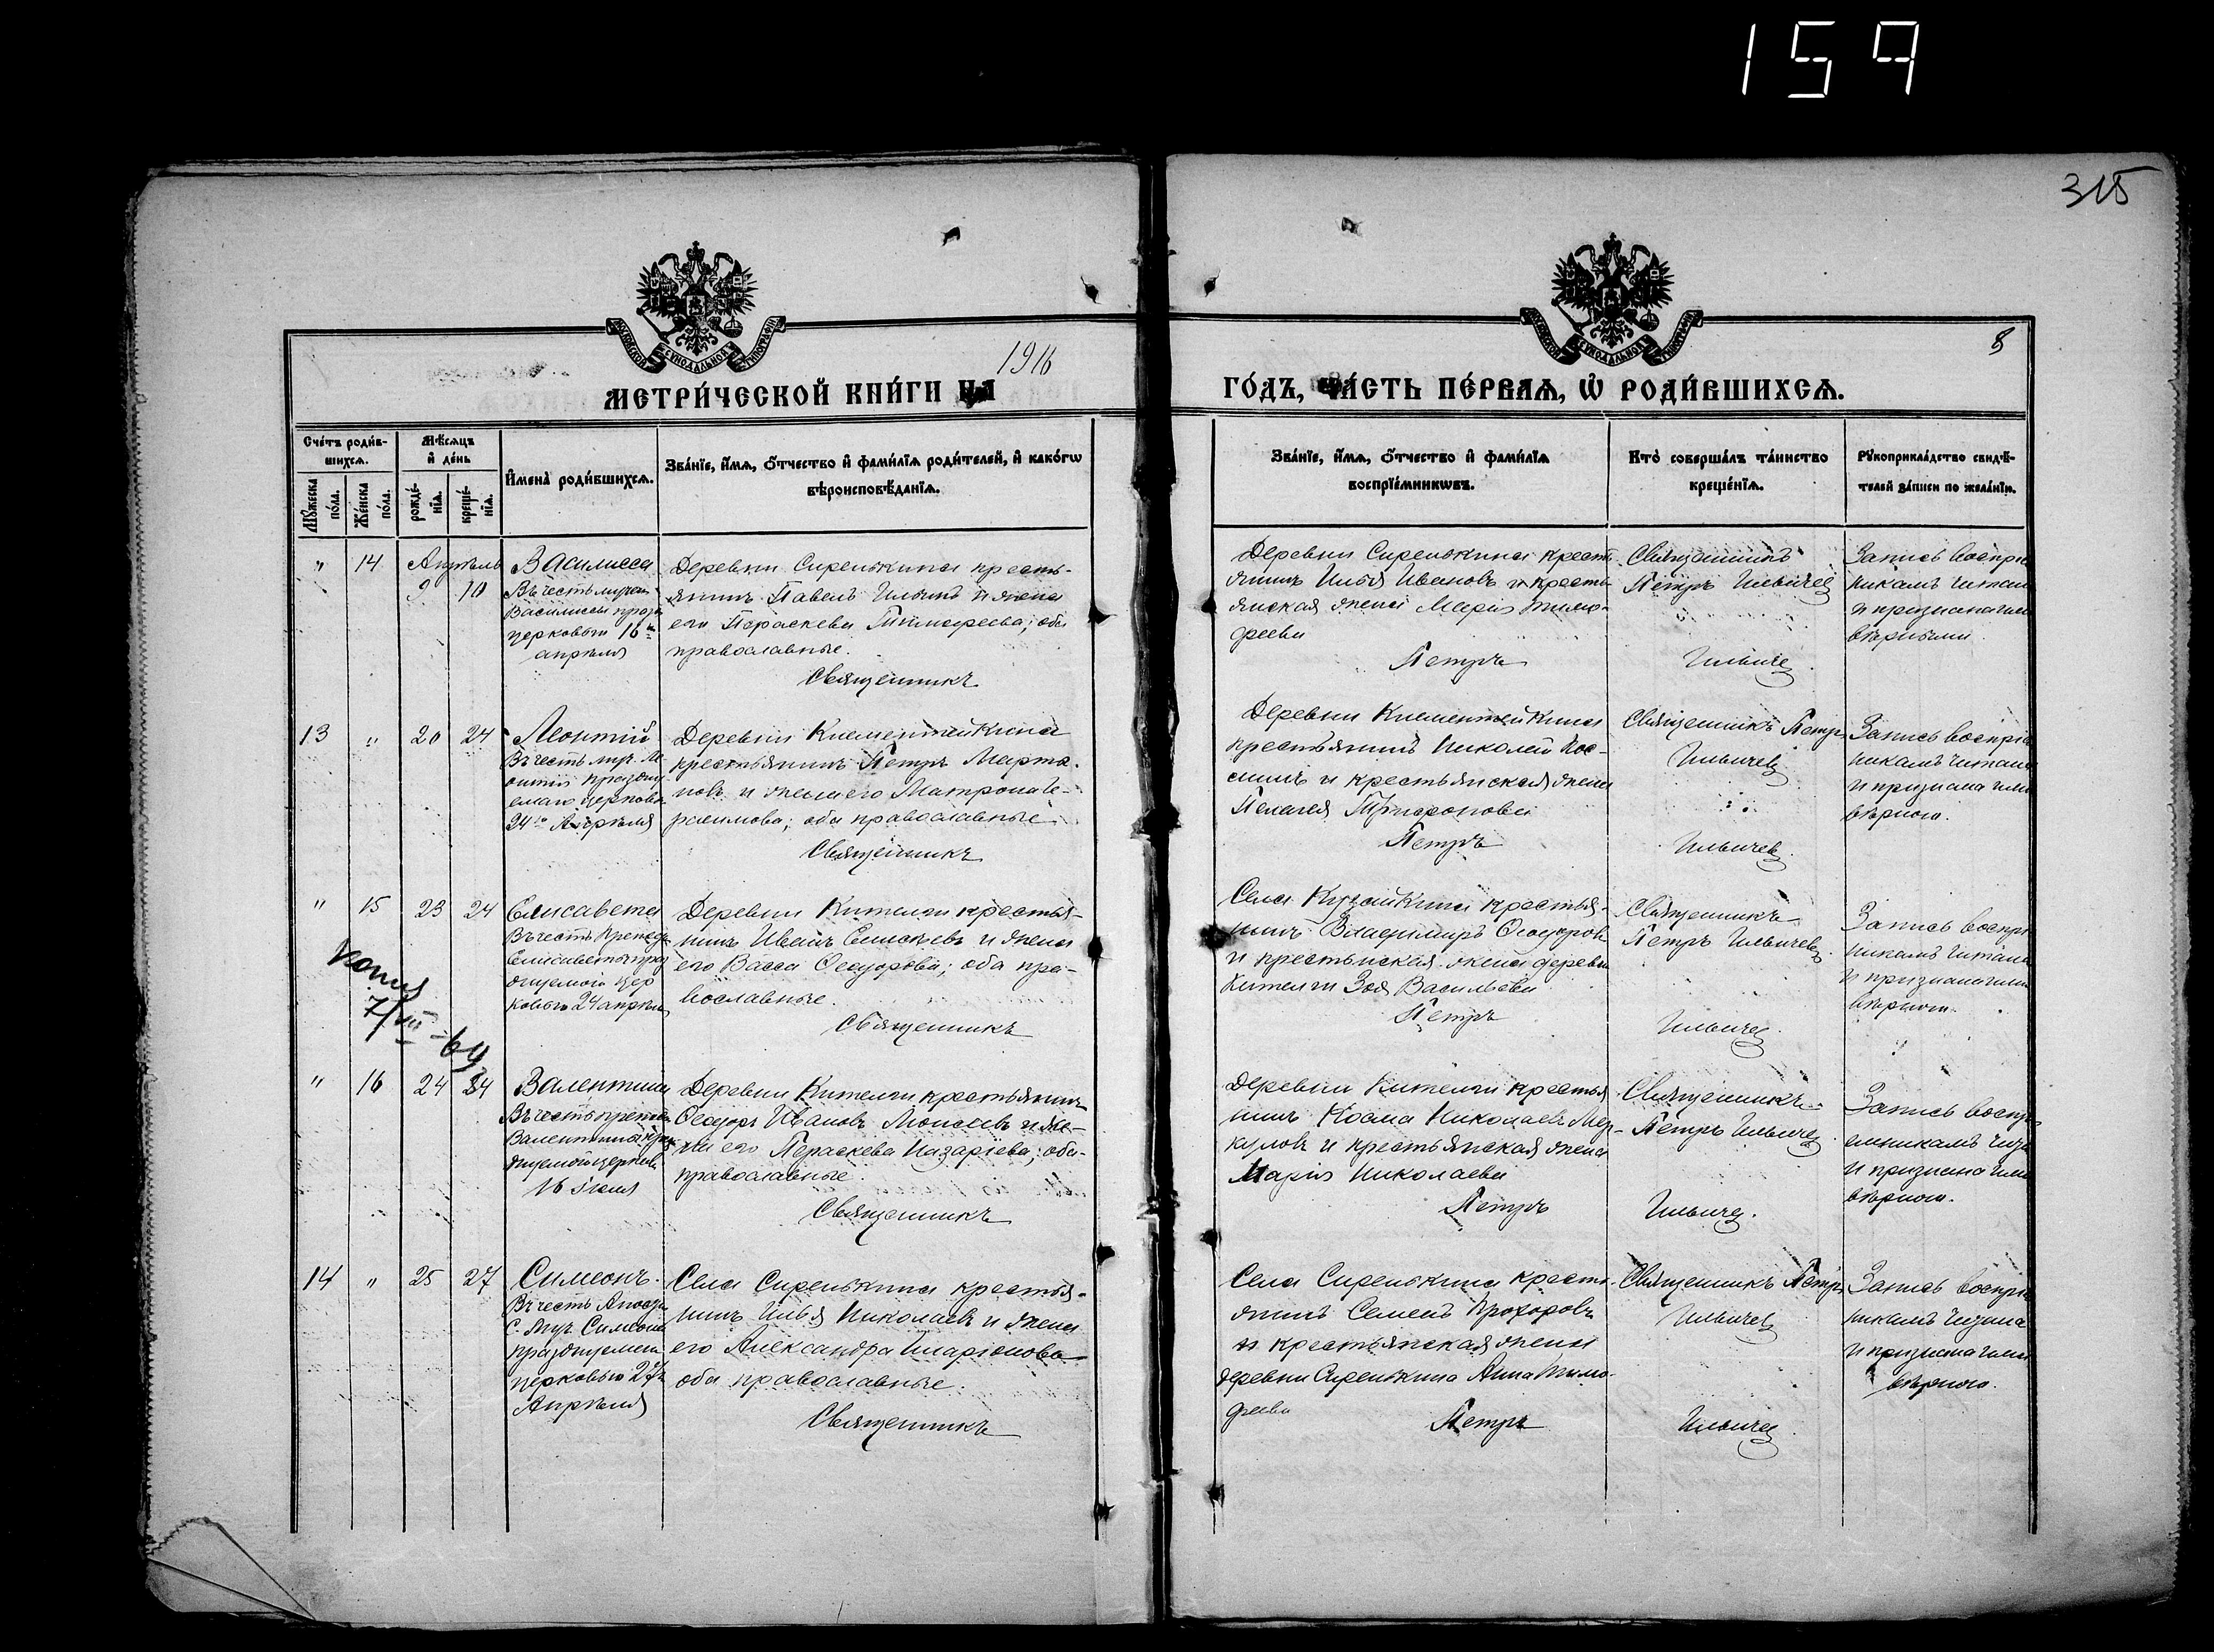 159
315
1916
8
МЕТРИ́ЧЕСКОЙ КНИ́ГИ НА
ГО́ДЪ, ЧА́СТЬ ПЕ́РВАѦ, Ѡ҆ РОДИ́ВШИХСѦ.
Сче́тъ роди́в-
шихсѧ.
Мѣ́сѧцъ
и҆ де́нь
И҆мена̀ роди́вшихсѧ.
Зва́нїе, и҆́мѧ, ѻ҆́тчество и҆ фами́лїѧ роди́телей, и҆ како́гѡ
вѣроисповѣ́данїѧ.
Мꙋ́жеска
по́ла.
Же́нска
по́ла.
рожде́-
нїѧ.
креще́-
нїѧ.
Зва́нїе, и҆́мѧ, ѻ҆́тчество и҆ фами́лїѧ
воспрїе́мникѡвъ.
Кто̀ соверша́лъ та́инство
креще́нїѧ.
Рꙋкоприкла́дство свидѣ́-
телей за́писи по жела́нїю.
" 14 Апрѣль
9 10
Василисса
Въ честь мучен
Василиссы празд
церковью 16го
апрѣля
Деревни Сиренькина кресть-
янинъ Павелъ Ильинъ и жена
его Параскева Тимофеева; оба
православные.
Священникъ
Деревни Сиренькина кресть
янинъ Илья Ивановъ и кресть
янская жена Марія Тимо-
феева
Петръ
Священникъ
Петръ Ильичев
Ильичев
Запись воспріе
никамъ читана
и признана ими
вѣрными.
13 " 20 24
Леонтій
Въ честь муч. Ле
онтія праздну
емаго церковью
24го Апрѣля
Деревни Клементейкина
крестьянинъ Петръ Марты-
новъ и жена его Матрона Ге-
расимова; оба православные
Священникъ
Деревни Клементейкина
крестьянинъ Николай Кос-
минъ и крестьянская жена
Пелагея Трифонова
Петръ
Священникъ Петръ
Ильичев
Ильичев
Запись воспріе
никамъ читана
и признана ими
вѣрною.
" 15 23 24
Елисавета
Въ честь Препод
Елисаветы праз
днуемой цер
ковью 24 апрѣля
Копия
7/VII-69
Деревни Кителги крестья-
нинъ Иванъ Елисѣевъ и жена
его Васса Ѳеодорова; оба пра-
вославные.
Священникъ
Села Кузайкина крестья-
нинъ Владимиръ Ѳеодоровъ
и крестьянская жена деревни
Кителги Зоя Васильева
Петръ
Священникъ
Петръ Ильичев
Ильичев
Запись воспріе
никамъ читана
и признана ими
вѣрною.
" 16 24 24
Валентина
Въ честь препод
Валентины праз
днуемой церковью
16 Іюля
Деревни Кителги крестьянинъ
Ѳеодоръ Ивановъ Моисеевъ и же-
на его Параскева Назаріева; оба
православные.
Священникъ
Деревни Кителги крестья
нинъ Косма Николаевъ Мер-
куловъ и крестьянская жена
Марія Николаева
Петръ
Священникъ
Петръ Ильичев
Ильичев.
Запись воспрі
емникамъ чита
и признана ими
вѣрною.
14 " 25 27
Симеонъ.
Въ честь Апост.
С. муч. Симеона
празднуемаго
церковью 27го
Апрѣля
Села Сиренькина крестья-
нинъ Илья Николаевъ и жена
его Александра Иларіонова
оба православные.
Священникъ
Села Сиренькина кресть-
янинъ Семенъ Прохоровъ
и крестьянская жена
деревни Сиренькина Анна Тимо-
феева
Петръ
Священникъ Петръ
Ильичев
Ильичев
Запись воспріе
никамъ читана
и признана ими
вѣрною.